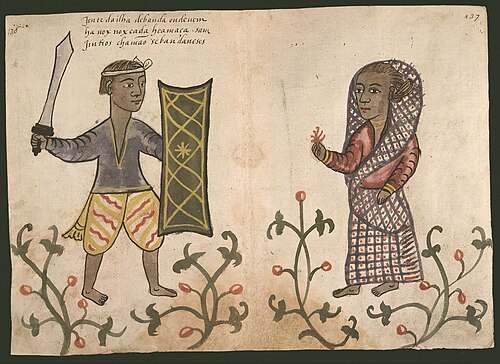 Jente da ilha debanda onde vem
ha nox noxcada he a maça sam
Jintios chamão se bandaneses
137